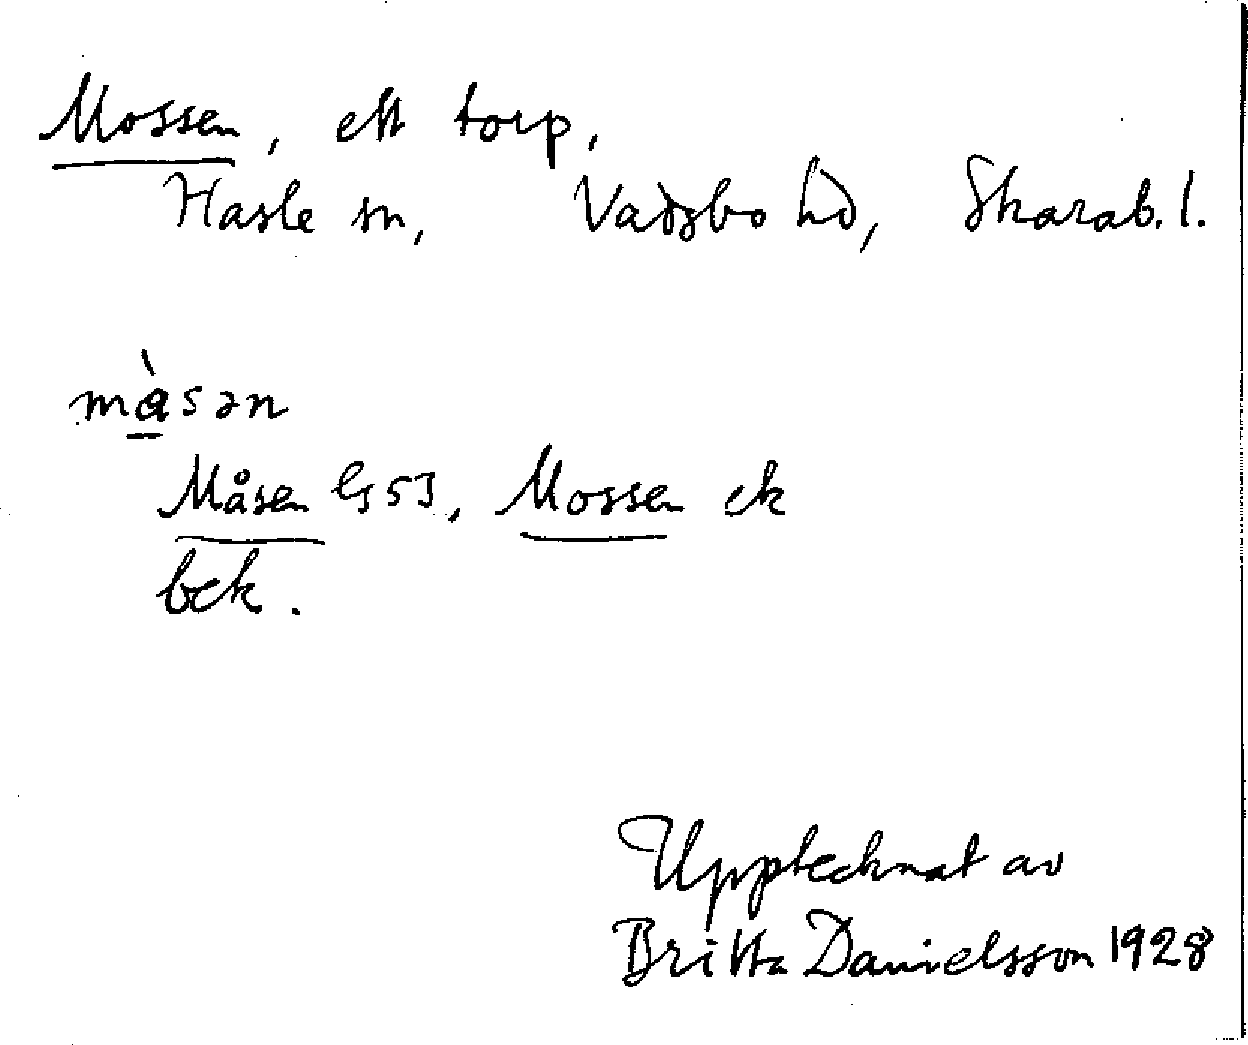 Mossen, ett torp,
Hasle sn, Vadsbo hd, Skarab. l.
màsən
Måsen G53, Mossen ek
bek.
Upptecknat av
Britta Danielsson 1928